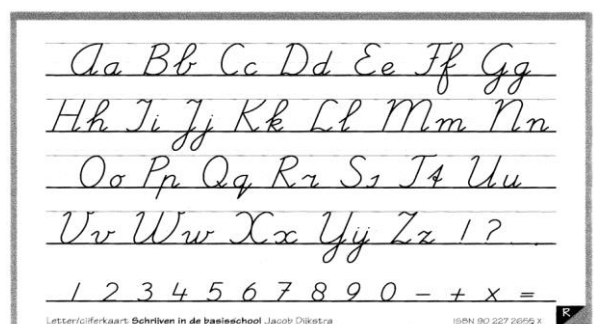 Aa Bb Cc Dd Ee Ff Gg
Hh Ii Jj Kk Ll Mm Nn
Oo Pp Qq Rr Ss Tt Uu
Vv Ww Xx Yy ij Zz ! ? . .
1 2 3 4 5 6 7 8 9 0 - + x =
Letter/cijferkaart Schrijven in de basisschool Jacob Dijkstra ISBN 90 227 2655 X R